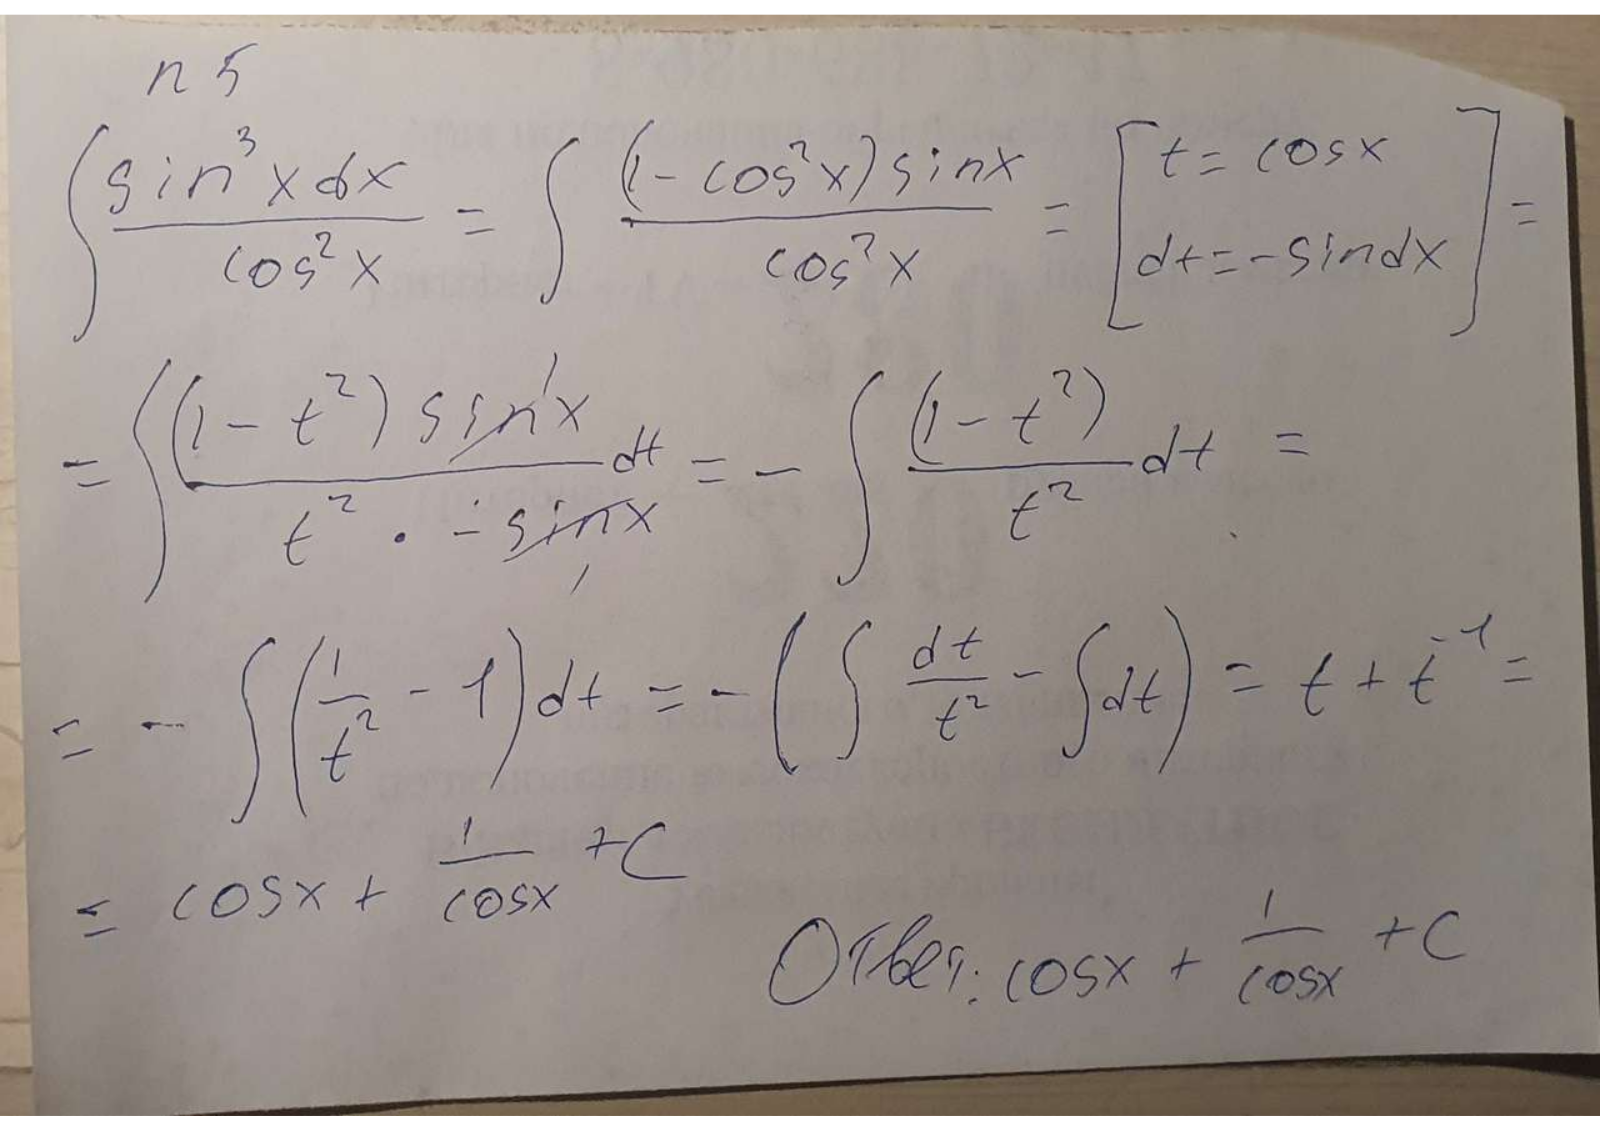 n 5
∫ sin³x dx / cos²x = ∫ (1 - cos²x) sinx / cos²x = [ t = cosx dt = -sindx ] =
= ∫ (1 - t²) sinx / t² · -sinx dt = - ∫ (1 - t²) / t² dt =
= - ∫ (1/t² - 1) dt = - ( ∫ dt/t² - ∫ dt ) = t + t⁻¹ =
= cosx + 1/cosx + C
Ответ: cosx + 1/cosx + C